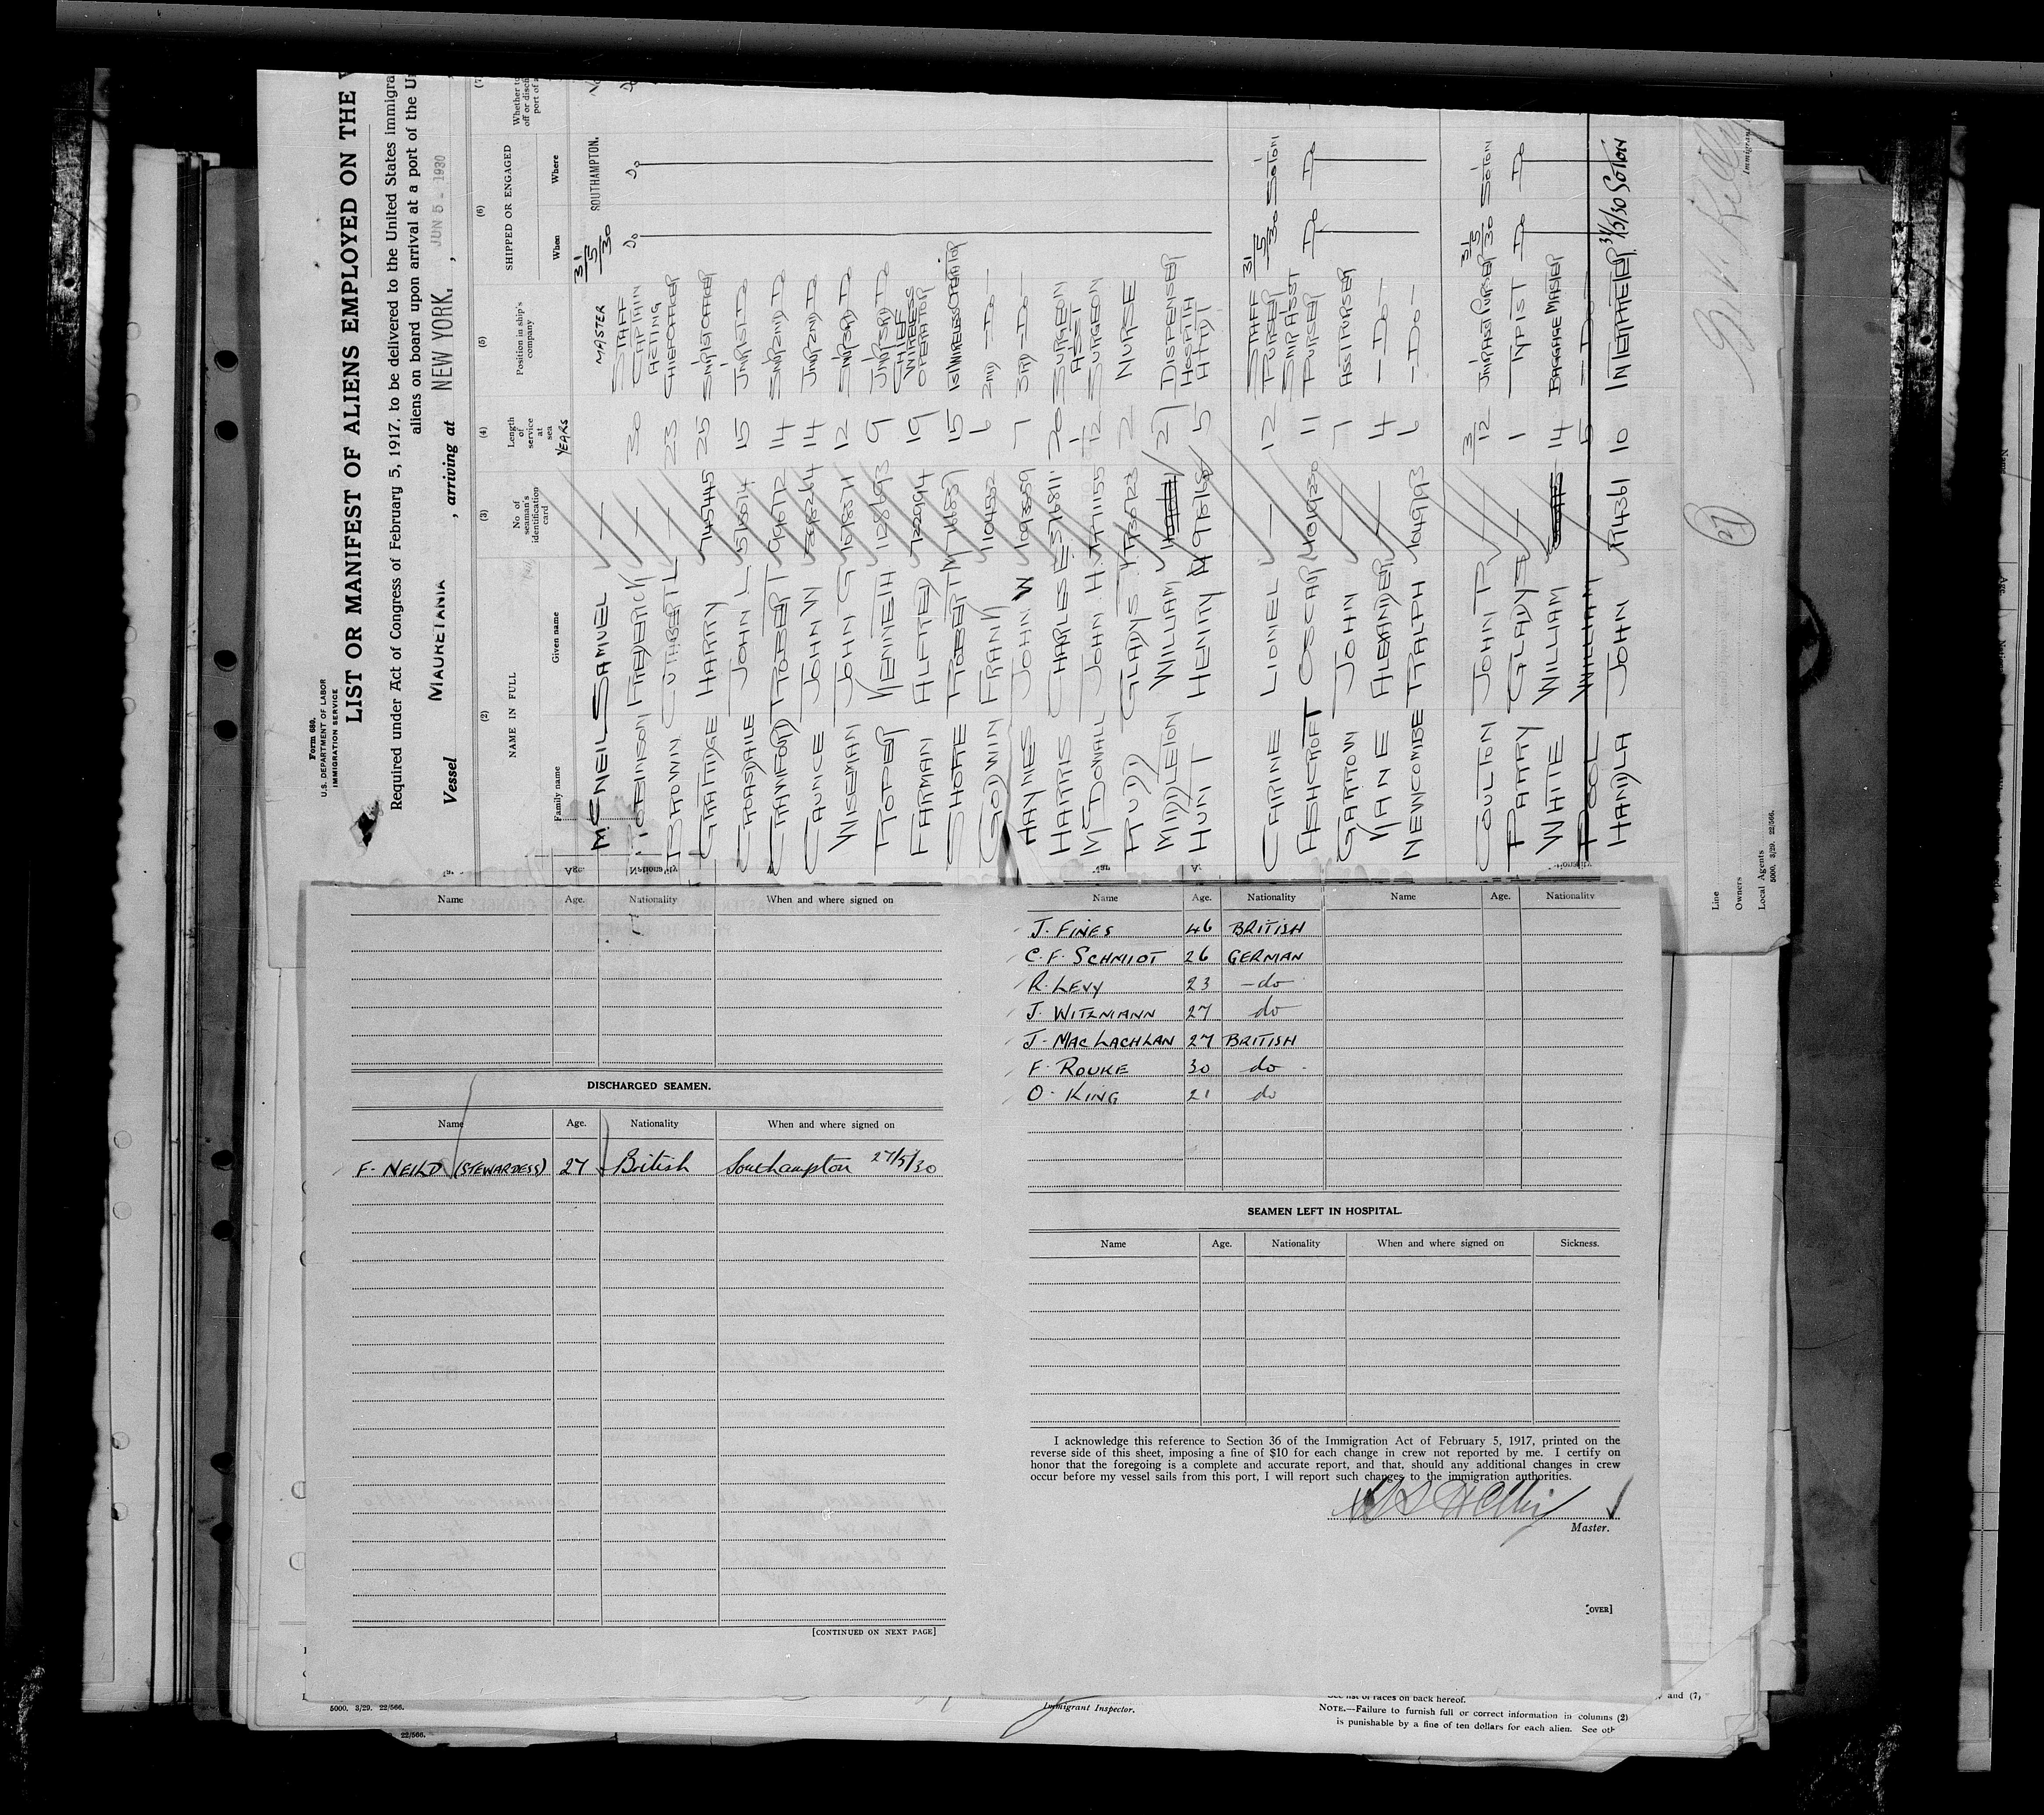 Form 689.
U.S. DEPARTMENT OF LABOR
IMMIGRATION SERVICE
LIST OR MANIFEST OF ALIENS EMPLOYED ON THE
Required under Act of Congress of February 5, 1917, to be delivered to the United States Immigra
aliens on board upon arrival at a port of the Un
Vessel MAURETANIA, arriving at NEW YORK, JUN 5 - 1930
(2) (3) (4) (5) (6) (7)
NAME IN FULL
Family name Given name
No. of seaman's identification card
Length of service at sea
YEARS
Position in ship's company
SHIPPED OR ENGAGED
When Where
McNEIL SAMUEL — MASTER 31/5/30 SOUTHAMPTON.
ROBINSON FREDERICK — 30 STAFF CAPTAIN Do Do
BROWN CUTHBERT L — 23 ACTING CHIEF OFFICER
GRATTIDGE HARRY 745445 25 SNR 1ST OFFICER
CROASDAILE JOHN L 15 JNR 1ST Do
CRAWFORD ROBERT 14 SNR 2ND Do
CAUNCE JOHN W 14 JNR 2ND Do
WISEMAN JOHN G 12 SNR 3RD Do
ROPER KENNETH 9 JNR 3RD Do
FARMAN ALFRED 722994 19 CHIEF WIRELESS OPERATOR
SHORE ROBERT M 15 1ST WIRELESS OPERATOR
GODWIN FRANK 6 2ND — Do —
HAYNES JOHN W 7 3RD — Do —
HARRIS CHARLES E 576811 26 SURGEON
McDOWALL JOHN H. 1/12 ASST SURGEON
RUDD GLADYS 2 NURSE
MIDDLETON WILLIAM 27 DISPENSER
HUNT HENRY 5 HOSPITAL ATTDT
CARINE LIONEL — 12 STAFF PURSER 31/5/30 SOTON
ASHCROFT OSCAR 11 SNR ASST PURSER Do Do
GARROW JOHN — 7 ASST PURSER
KANE ALEXANDER — 4 — Do —
NEWCOMBE RALPH 1049993 6 — Do —
COULTON JOHN P — 3/12 JNR ASST PURSER 31/5/30 SOTON
PARRY GLADYS — 1 TYPIST Do Do
WHITE WILLIAM 14 BAGGAGE MASTER
POOL WILLIAM 5 — Do —
HANDLA JOHN 10 INTERPRETER 31/5/30 SOTON
Line
Owners
Local Agents
5000. 3/29. 22/566.
Name Age. Nationality When and where signed on
DISCHARGED SEAMEN.
Name Age. Nationality When and where signed on
F. NEILD (STEWARDESS) 27 British Southampton 27/5/30
[CONTINUED ON NEXT PAGE]
Name Age. Nationality Name Age. Nationality
J. FINES 46 BRITISH
C. F. SCHMIDT 26 GERMAN
R. LEVY 23 — do
J. WITZMANN 27 do
J. MACLACHLAN 27 BRITISH
F. ROUKE 30 do
O. KING 21 do
SEAMEN LEFT IN HOSPITAL.
Name Age. Nationality When and where signed on Sickness.
I acknowledge this reference to Section 36 of the Immigration Act of February 5, 1917, printed on the
reverse side of this sheet, imposing a fine of $10 for each change in crew not reported by me. I certify on
honor that the foregoing is a complete and accurate report, and that, should any additional changes in crew
occur before my vessel sails from this port, I will report such changes to the immigration authorities.
Master.
[OVER]
5000. 3/29. 22/566.
Immigrant Inspector.
See list of races on back hereof.
and (7)
NOTE.—Failure to furnish full or correct information in columns (2)
is punishable by a fine of ten dollars for each alien. See oth
22/566.